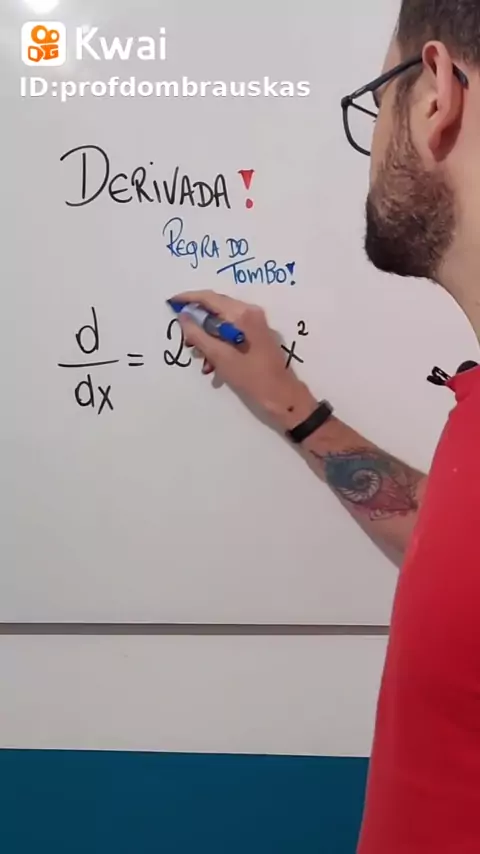 Kwai
ID:profdombrauskas
DERIVADA!
REGRA DO
TOMBO!
d
dx = 2 x²